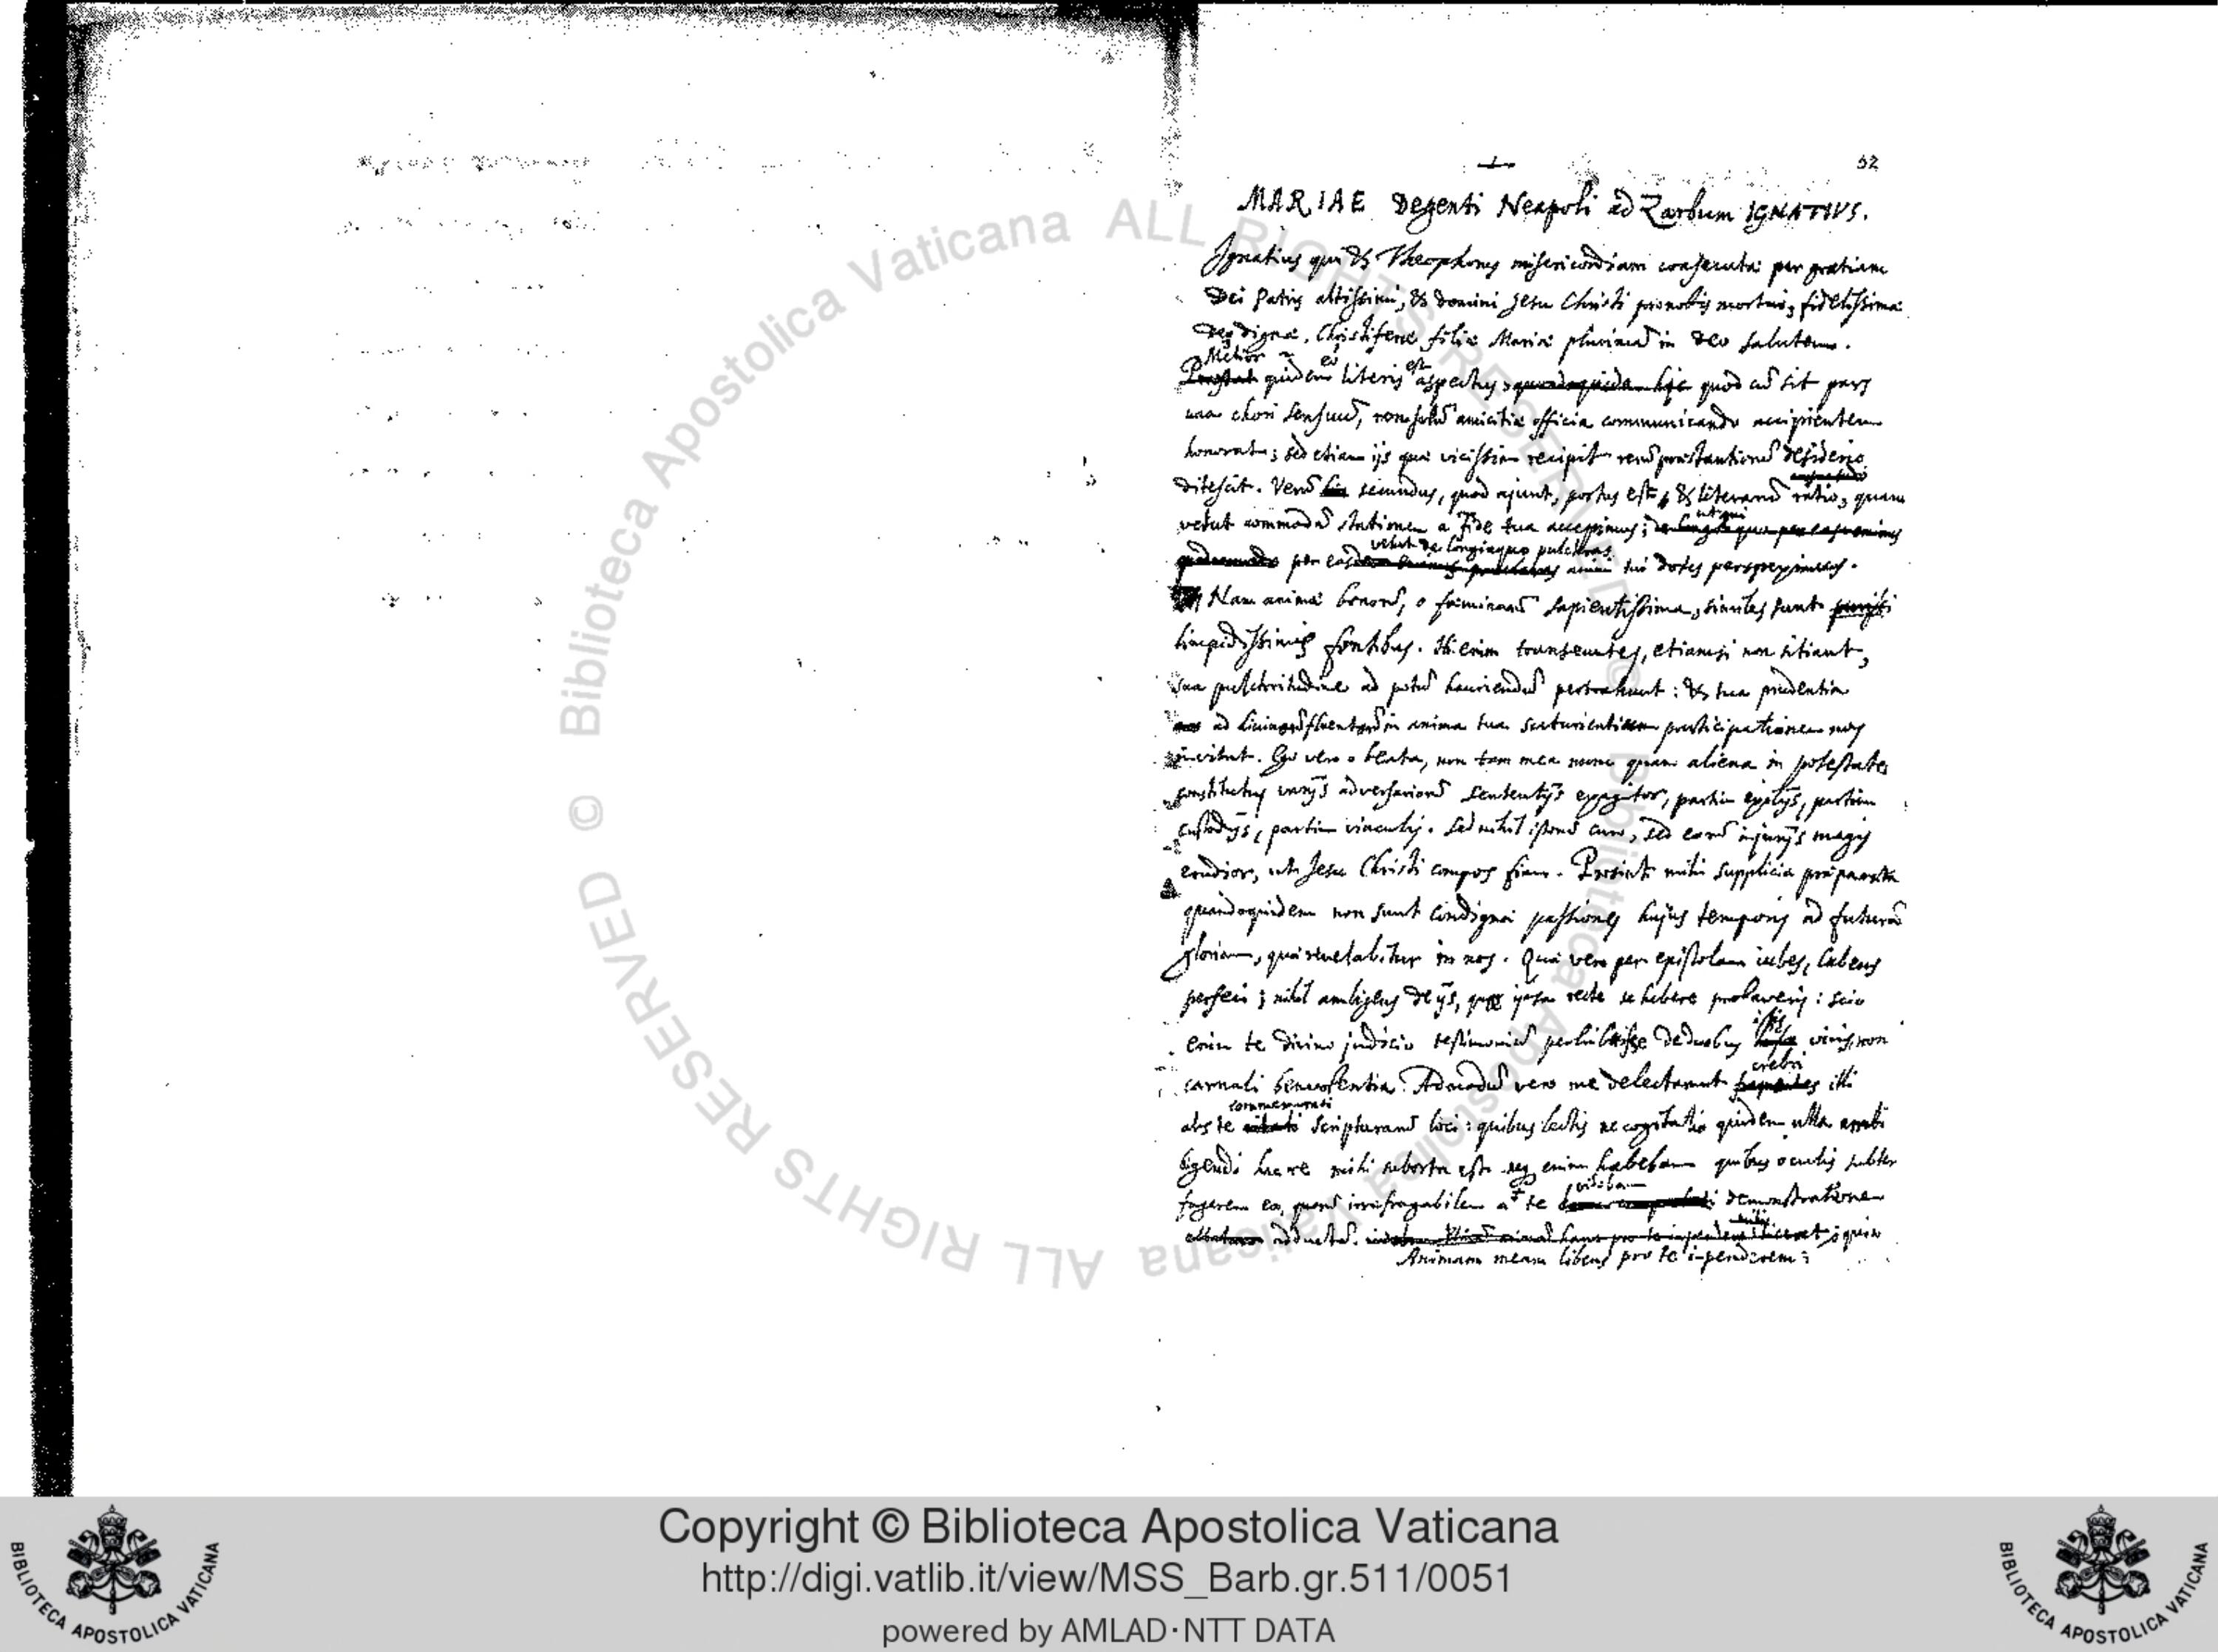 52
MARIAE Degenti Neapoli ad Zarbum IGNATIVS.
Ignatius qui & Theophorus misericordiam consecutæ per gratiam
Dei Patris altissimi, & domini Jesu Christi pro nobis mortui, fidelissimæ
Deo dignæ, Christiferæ filiæ Mariæ plurimā in Deo salutem.
Melior eō est
quidem literis aspectus quod cū sit pars
una chori sensuū, non solū amicitiæ officia communicando accipientem
honorat; sed etiam ijs quæ vicissim recipit rerū præstantiorū desiderio
ditescit. Verū secundus, quod ajunt, portus est & literarū ratio, quam
velut commodā stationem a fide tua accepimus;
velut de longinquo pulchras
per eas animi tui dotes perspeximus.
Nam animæ bonorū, o fœminarū sapientissima, similes sunt
limpidissimis fontibus. Hi enim transeuntes, etiamsi non sitiant,
sua pulchritudine ad potū hauriendū pertrahunt: & tua prudentia
ad divinorū fluentorū in anima tua scaturientium participationem nos
invitat. Ego vero o beata, non tam mea nunc quam aliena in potestate
constitutus varijs adversariorū sententijs exagitor, partim exilijs, partim
custodijs, partim vinculis. Sed nihil istorū curo, sed eorū injurijs magis
erudior, ut Jesu Christi compos fiam. Prosint mihi supplicia præparata
quandoquidem non sunt condignæ passiones hujus temporis ad futurā
gloriam, quæ revelabitur in nos. Quæ vero per epistolam iubes, lubens
perfeci; nihil ambigens de ijs, quæ ipsa recte se habere probaveris: scio
enim te divino judicio testimoniū perhibuisse de duobus istis viris, non
carnali benevolentia. Admodū vero me delectarunt crebri illi
commemorati
abs te scripturarū loci: quibus lectis ne cogitatio quidem ulla ambi
gendi hac re mihi suborta est neq enim habebam quibus oculis subter
fugerem ea, quorū irrefragabilem a te videbam demonstrationem
adductā. quin
Animam meam libens pro te impenderem;